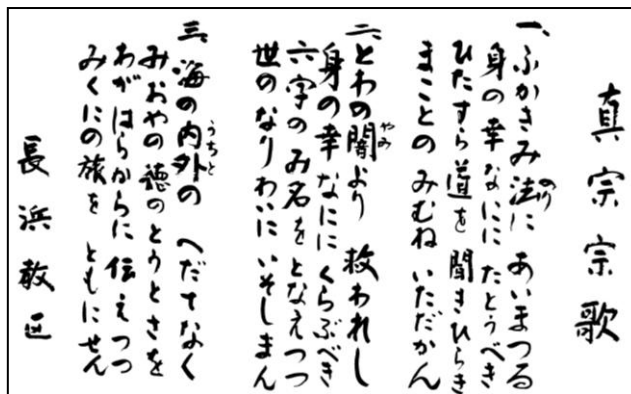 真宗宗歌
一、ふかきみ法に あいまつる
身の幸なにに たとうべき
ひたすら道を 聞きひらき
まことの みむね いただかん
二、とわの闇より 救われし
身の幸なにに くらぶべき
六字のみ名を となえつつ
世のなりわいに いそしまん
三、海の内外の へだてなく
みおやの徳の とうとさを
わがはらからに 伝えつつ
みくにの旅を ともにせん
長浜教区